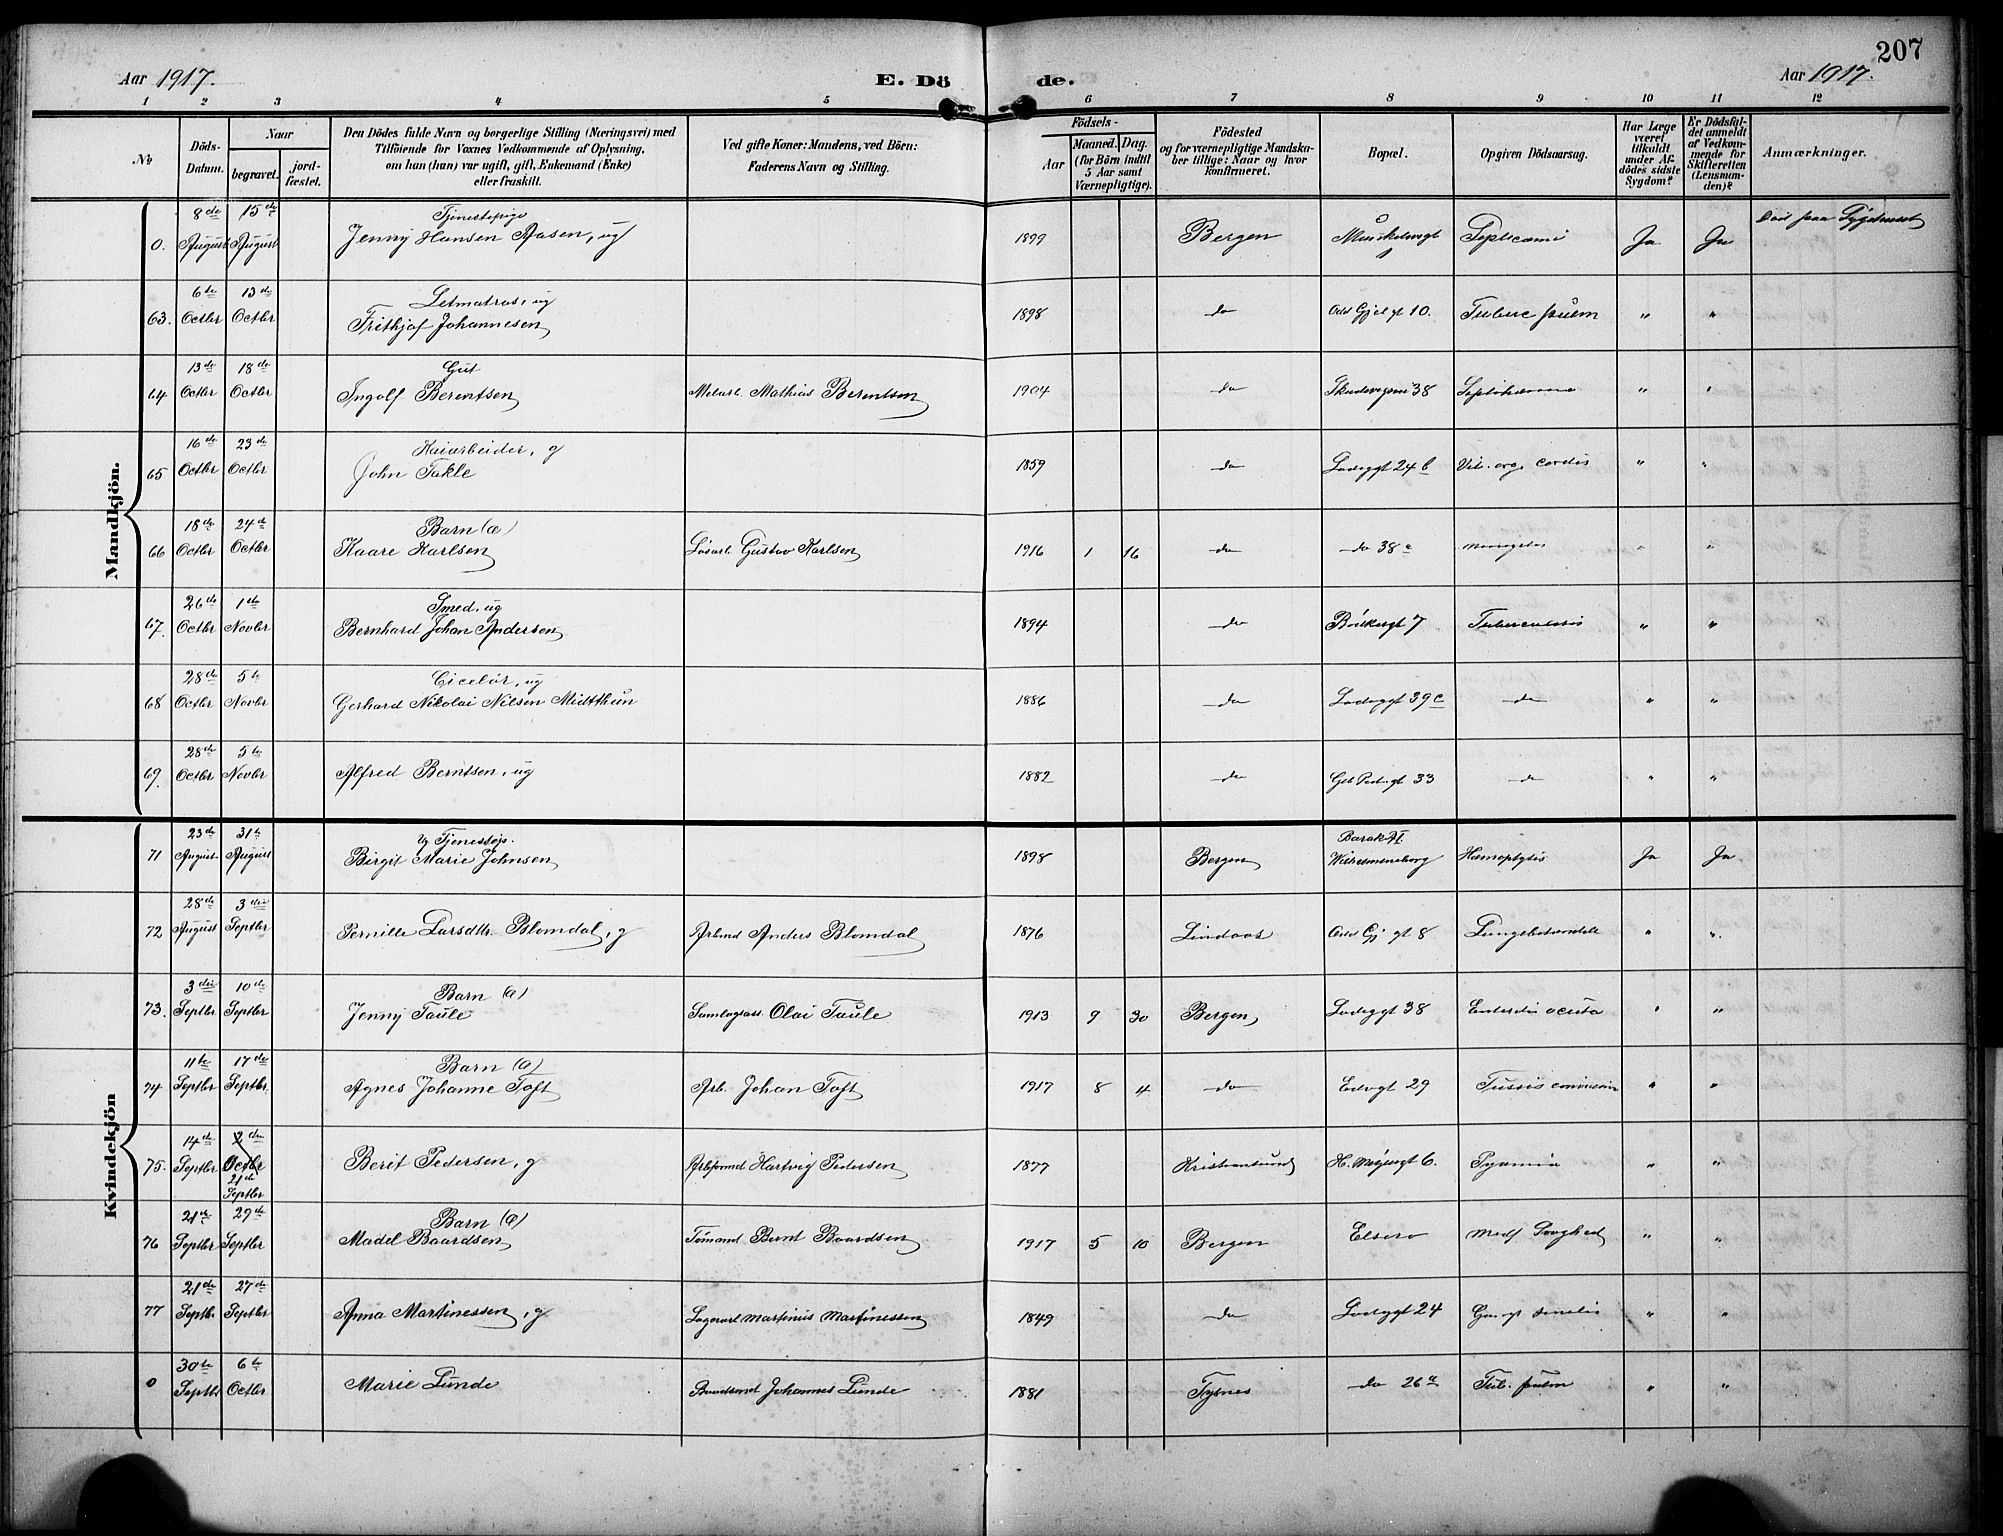 207
Aar 1917. E. Dö de. Aar 1917.
1 2 3 4 5 6 7 8 9 10 11 12
No
Döds-Datum.
Naar
begravet.
jord-fæstet.
Den Dödes fulde Navn og borgerlige Stilling (Næringsvei) med
Tilföiende for Voxnes Vedkommende af Oplysning,
om han (hun) var ugift, gift, Enkemand (Enke)
eller fraskilt.
Ved gifte Koner: Mandens, ved Börn:
Faderens Navn og Stilling.
Födsels-
Aar
Maaned. Dag.
(for Börn indtil
5 Aar samt
Værnepligtige).
Födested
og for værnepligtige Mandska-
ber tillige: Naar og hvor
konfirmeret.
Bopæl.
Opgiven Dödsaarsag.
Har Læge
været
tilkaldt
under Af-
dödes sidste
Sygdom?
Er Dödsfal-
det anmeldt
af Vedkom-
mende for
Skifteretten
(Lensman-
den)?
Anmærkninger.
Mandkjön.
8de 15de Tjenestepige
0. August August Jenny Hansen Aasen, ug 1899 Bergen Septicæmi Ja Ja Död paa Sygehuset
6te 13de Letmatros, ug
63. Octbr Octbr Frithjof Johannesen 1898 do Odd Gjel gt 10. Tuberc pulm " "
13de 18de Gut
64 Octbr Octbr Ingolf Berentsen Mathias Berentsen 1904 do 38 " "
16de 23de Kaiarbeider, g
65 Octbr Octbr John Takle 1859 do Ladeggt 24 b Vit. org. cordis " "
18de 24de Barn (æ)
66 Octbr Octbr Kaare Karlsen Løsarb. Gustav Karlsen 1916 1 16 do do 38 " "
26de 1de Smed, ug
67. Octbr Novbr Bernhard Johan Andersen 1894 do 7 Tuberculosis " "
28de 5te Ciselør, ug
68 Octbr Novbr Gerhard Nikolai Nilsen Midtthun 1886 do Ladeggt 39c do " "
28de 5te
69. Octbr Novbr Alfred Berntsen, ug 1882 do 33 do " "
Kvindekjön
23de 31te Ug Tjenestep. Barak VI
71 August August Birgit Marie Johnsen 1898 Bergen Wilhelmineborg Hæmoptysis Ja Ja
28de 3die
72 August Septbr Pernille Larsdtr. Blomdal, g Arbmd Anders Blomdal 1876 Lindaas Odd Gj gt 8 Lungebetændelse " "
3die 10de Barn (æ)
73. Septbr Septbr Jenny Taule Olai Taule 1913 9 30 Bergen Ladeggt 38 Enteritis acuta " "
11te 17de Barn (æ)
74 Septbr Septbr. Agnes Johanne Toft Arb. Johan Toft 1917 8 4 do 29 Tussis convulsiva " "
14de 2den
75. Septbr Octbr Berit Pedersen, g Arbformd Hartvig Pedersen 1877 Kristiansund H. Meyersgt 6. Pyæmia " "
21de
Septbr
21de 29de Barn (æ)
76 Septbr Septbr Madel Baardsen Tømmd Bernt Baardsen 1917 5 10 Bergen Elsero Medf Svaghed " "
21de 27de
77 Septbr. Septbr Anna Martinessen, g Lagerarb Martinius Martinessen 1849 do Ladeggt 24 " "
30te 6te
0 Septbr Octbr Marie Lunde Johannes Lunde 1881 Tysnes do 26a Tub. pulm " "